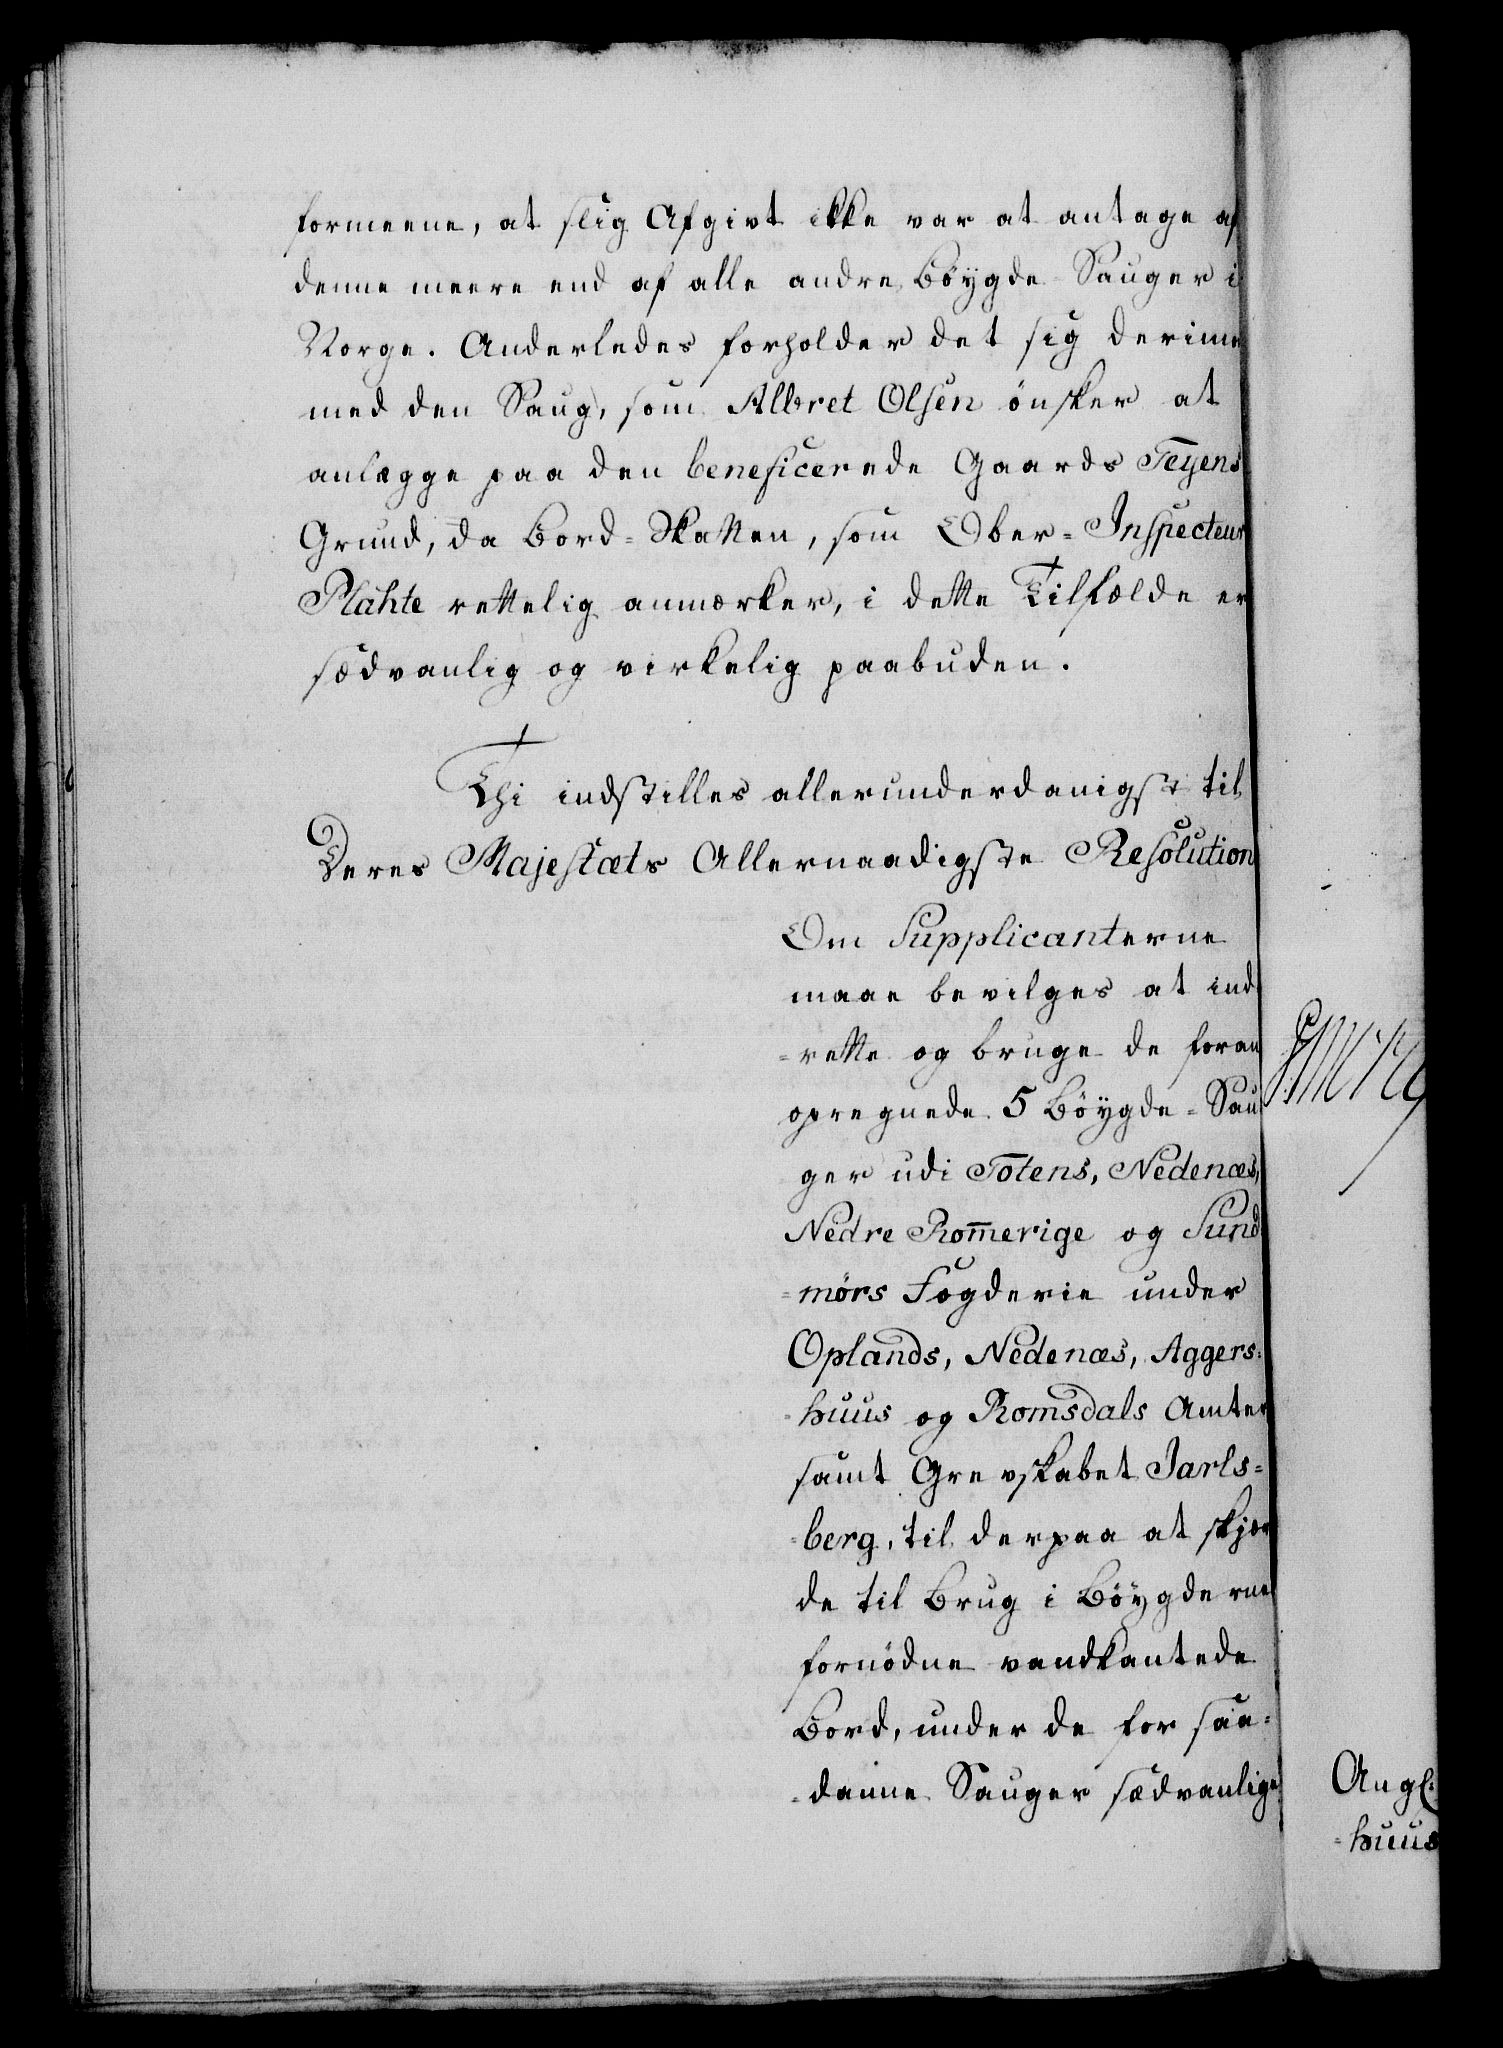 formeene, at slig Afgivt ikke var at antage af
denne meere end af alle andre Böygde-Sauger i
Norge. Anderledes forholder det sig derimod
med den Saug, som Albret Olsen ønsker at
anlægge paa den beneficerede Gaards Teyens
Grund, da Bord-Skatten, som Ober-Inspecteur
Plahte rettelig anmærker, i dette Tilfælde er
sædvanlig og virkelig paabuden.
Thi indstilles allerunderdanigst til
Deres Majestæts Allernaadigste Resolution
Om Supplicanterne
maae bevilges at ind-
-rette og bruge de foran
opregnede 5 Böygde-Sau-
ger udi Totens, Nedenæs,
Nedre Rom̄erige og Sund-
-mørs Fogderie under
Oplands, Nedenæs, Aggers-
-huus og Romsdals Amter
samt Grevskabet Jarls-
-berg, til derpaa at skjæ-
de til Brug i Böygderne
fornödne vandkantede
Bord, under de for saa-
-danne Sauger sædvanlige
Angl:
-huus